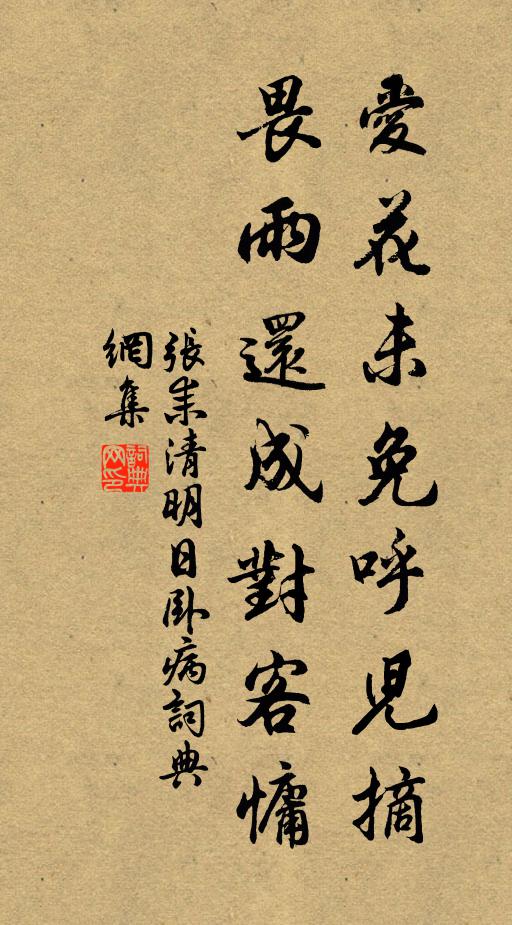 愛花未免呼兒摘
畏雨還成對客慵
張耒清明日臥病詞典
網集
詞典
网印